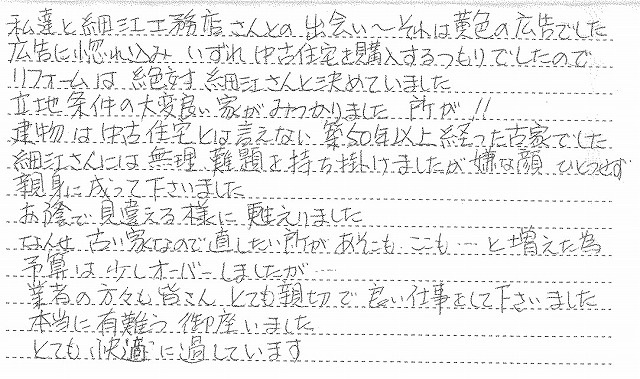 私達と細江工務店さんとの出会い〜それは黄色の広告でした
広告に惚れ込み いずれ中古住宅を購入するつもりでしたので
リフォームは絶対細江さんと決めていました
立地条件の大変良い家がみつかりました 所が!!
建物は中古住宅とは言えない築50年以上経った古家でした
細江さんには無理難題を持ち掛けましたが嫌な顔ひとつせず
親身に成って下さいました
お陰で見違える様に甦えりました
なんせ古い家なので直したい所があそこも ここも…と増えた為
予算は少しオーバーしましたが…
業者の方々も皆さん とても親切で良い仕事をして下さいました
本当に有難う御座いました
とても快適に過しています